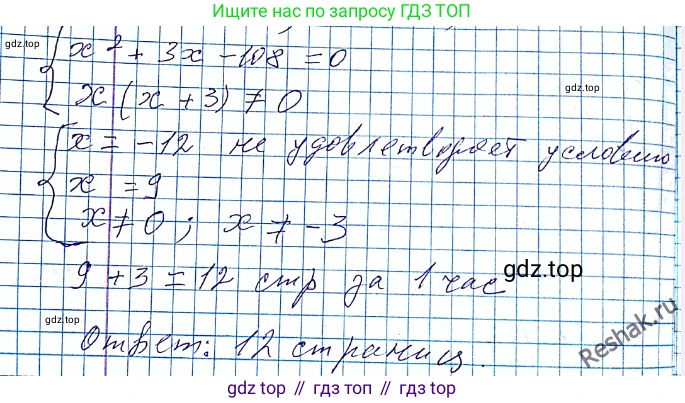 Ищите нас по запросу ГДЗ ТОП
gdz.top
x² + 3x - 108 = 0
gdz.top
x(x + 3) ≠ 0
x = -12 не удовлетворяет условию
x = 9
x ≠ 0; x ≠ -3
9 + 3 = 12 стр за 1 час
gdz.top
gdz.top
Ответ: 12 страниц.
Reshak.ru
gdz.top // гдз топ // гдз.топ